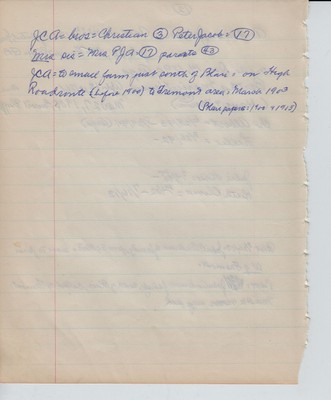 JCA = bros = Christian ③ Peter Jacob = ⑰
Mrs sis = Mrs PJA = ⑰ parents ㊸
JCA = to small farm just south of Blair, on High
Road route (before 1900) to Fremont area = March 1903
(Blair papers: 1900 & 1903)